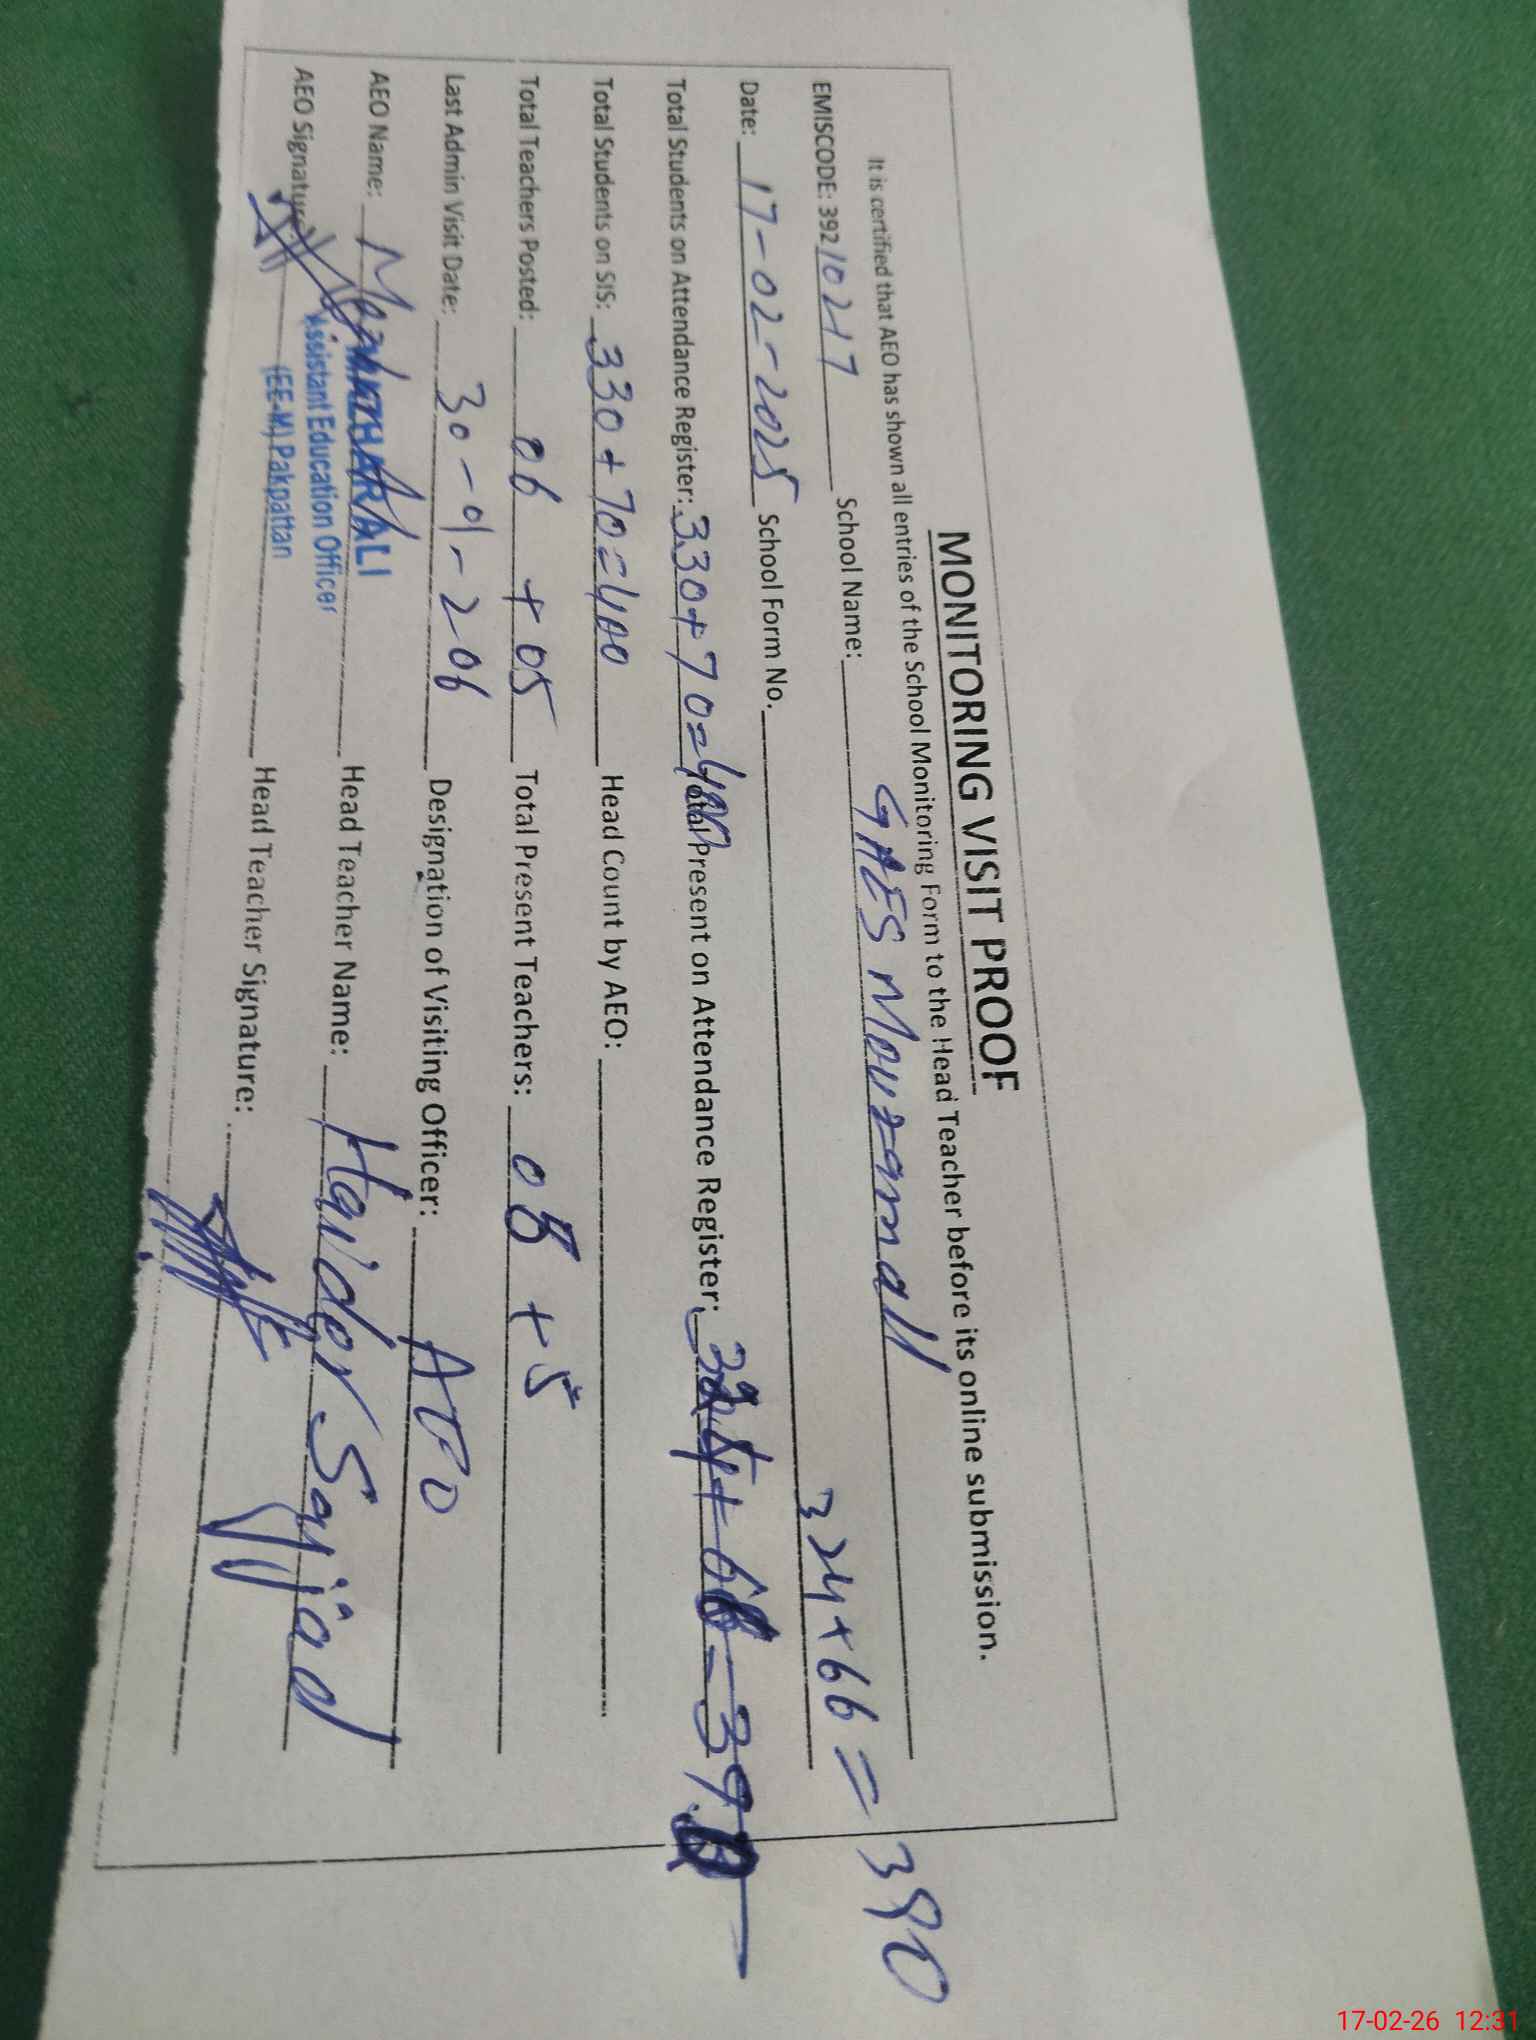 MONITORING VISIT PROOF
It is certified that AEO has shown all entries of the School Monitoring Form to the Head Teacher before its online submission.
EMISCODE: 39210217 School Name: GHES Mouzamall
Date: 17-02-2025 School Form No. 324+66=390
Total Students on Attendance Register: 330+70=400 Total Present on Attendance Register:
Total Students on SIS: 330+70=400 Head Count by AEO:
Total Teachers Posted: 06 +05 Total Present Teachers: +5
Last Admin Visit Date: 30-01-206 Designation of Visiting Officer: AEO
AEO Name: Mazhar Ali Head Teacher Name: Haider Sajjad
MAZHAR ALI
AEO Signature: Head Teacher Signature:
Assistant Education Officer
(EE-M) Pakpattan
17-02-26 12:31